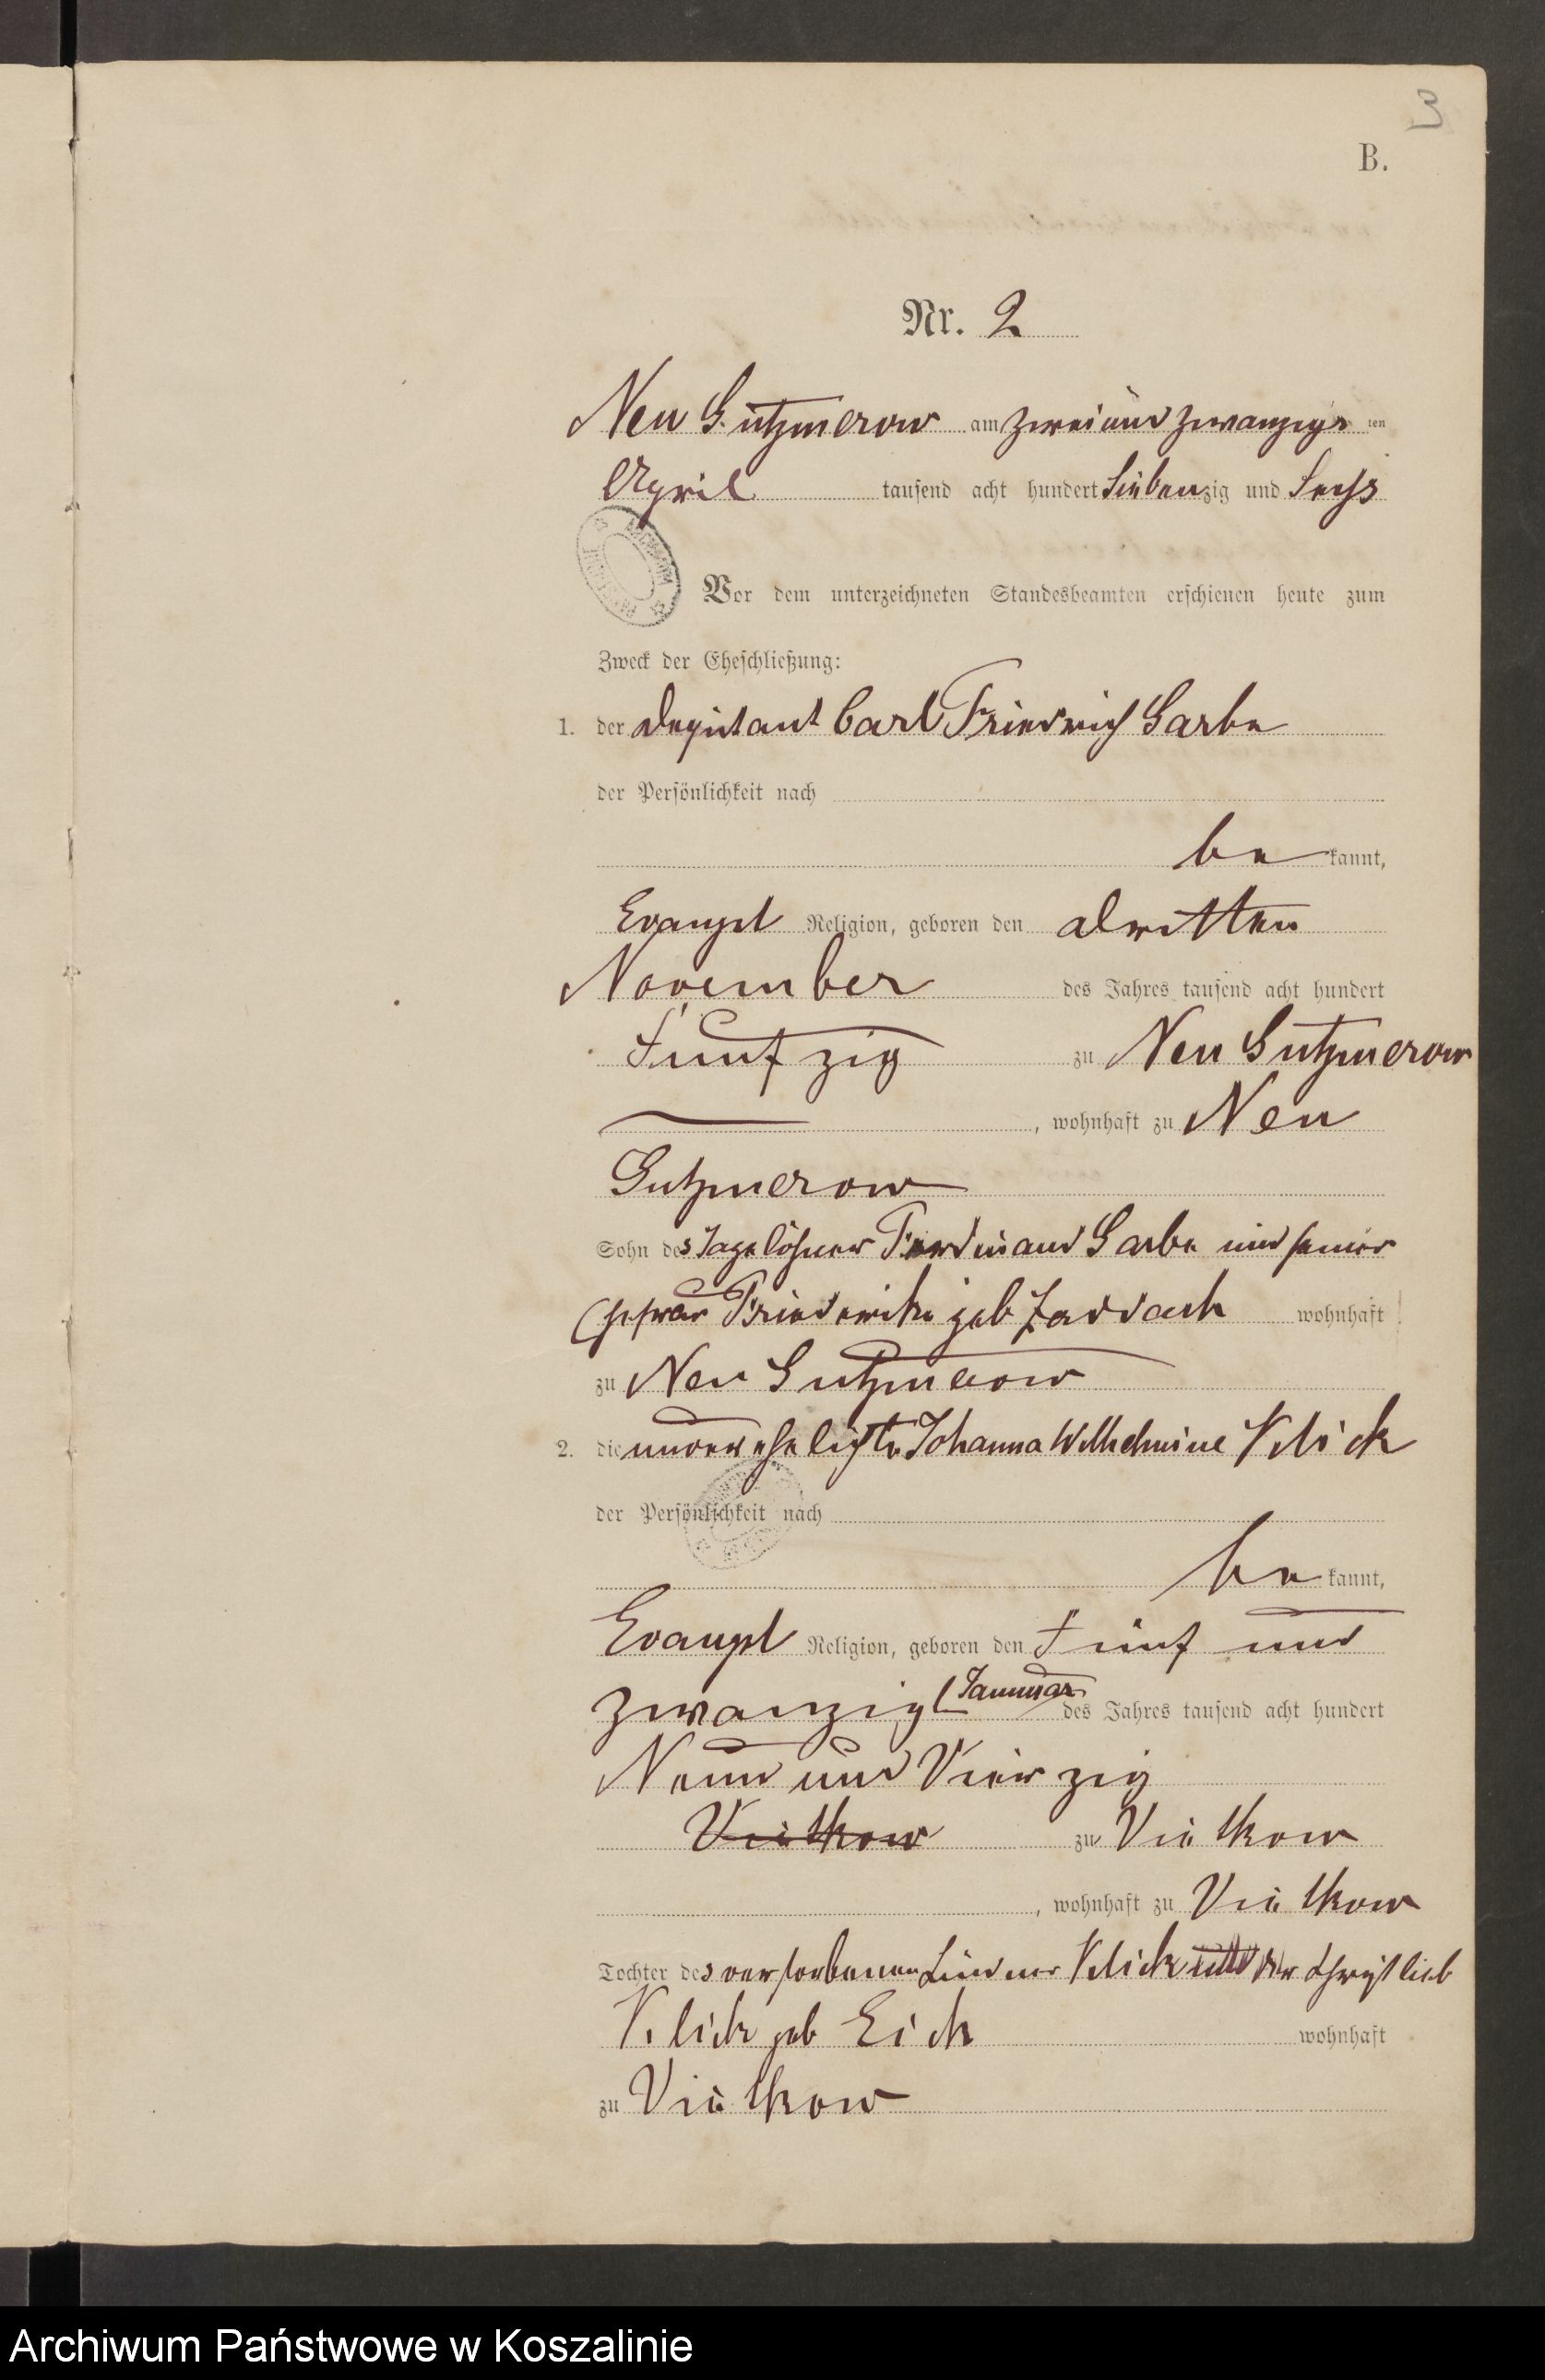 3
B.
Nr. 2
Neu Gutzmerow am zwei und zwanzigs ten
April tausend acht hundert Siebenzig und Sechs
Vor dem unterzeichneten Standesbeamten erschienen heute zum
Zweck der Eheschließung:
1. der Deputant Carl Friedrich Garbe
der Persönlichkeit nach
be kannt,
Evangel Religion, geboren den dritten
November des Jahres tausend acht hundert
Funfzig zu Neu Gutzmerow
, wohnhaft zu Neu
Gutzmerow
Sohn des Tagelöhner Ferdinand Garbe und seiner
Ehefrau Friederike geb Zaddach wohnhaft
zu Neu Gutzmerow
2. die unverehelichte Johanna Wilhelmine Klick
der Persönlichkeit nach
be kannt,
Evangl Religion, geboren den Fünf und
zwanzigt Januar des Jahres tausend acht hundert
Neun und Vierzig
Vietkow zu Vietkow
, wohnhaft zu Vietkow
Tochter des verstorbenen Klick und der
Klick geb Eick wohnhaft
zu Vietkow
Archiwum Państwowe w Koszalinie